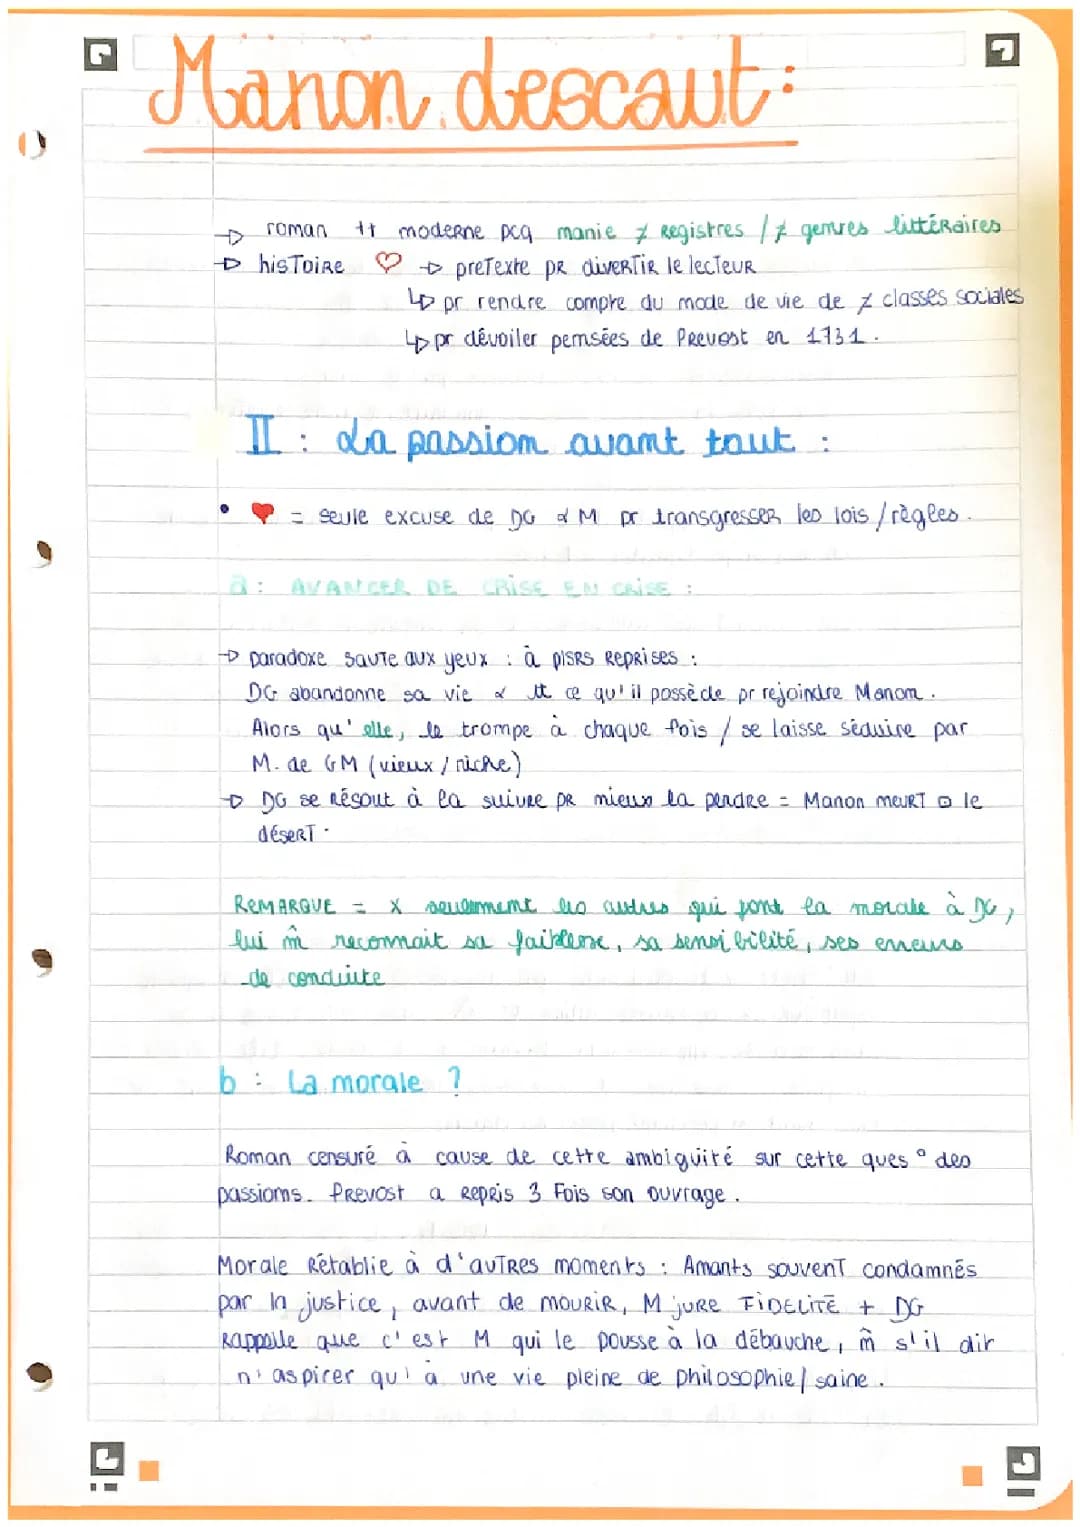 Manon descaut :
→ roman tt moderne pcq manie ≠ registres / ≠ genres littéraires
→ histoire ♡ → prétexte pr divertir le lecteur
↳ pr rendre compte du mode de vie de ≠ classes sociales
↳ pr dévoiler pensées de Prevost en 1731.
II : La passion avant tout :
• ♥ = seule excuse de DG & M pr transgresser les lois / règles.
a : AVANCER DE CRISE EN CRISE :
→ paradoxe saute aux yeux : à plsrs reprises :
DG abandonne sa vie & tt ce qu'il possède pr rejoindre Manon.
Alors qu'elle, le trompe à chaque fois / se laisse séduire par
M. de GM (vieux / riche)
→ DG se résout à la suivre pr mieux la perdre = Manon meurt ⊡ le
désert.
REMARQUE = X seulement les autres qui font la morale à DG,
lui m̂ reconnait sa faiblesse, sa sensibilité, ses erreurs
de conduite
b : La morale ?
Roman censuré à cause de cette ambiguité sur cette ques° des
passions. Prevost a repris 3 Fois son ouvrage.
Morale Rétablie à d'autres moments : Amants souvent condamnés
par la justice, avant de mourir, M jure FIDELITÉ + DG
Rappelle que c'est M qui le pousse à la débauche, m̂ s'il dit
n'aspirer qu'à une vie pleine de philosophie / saine.